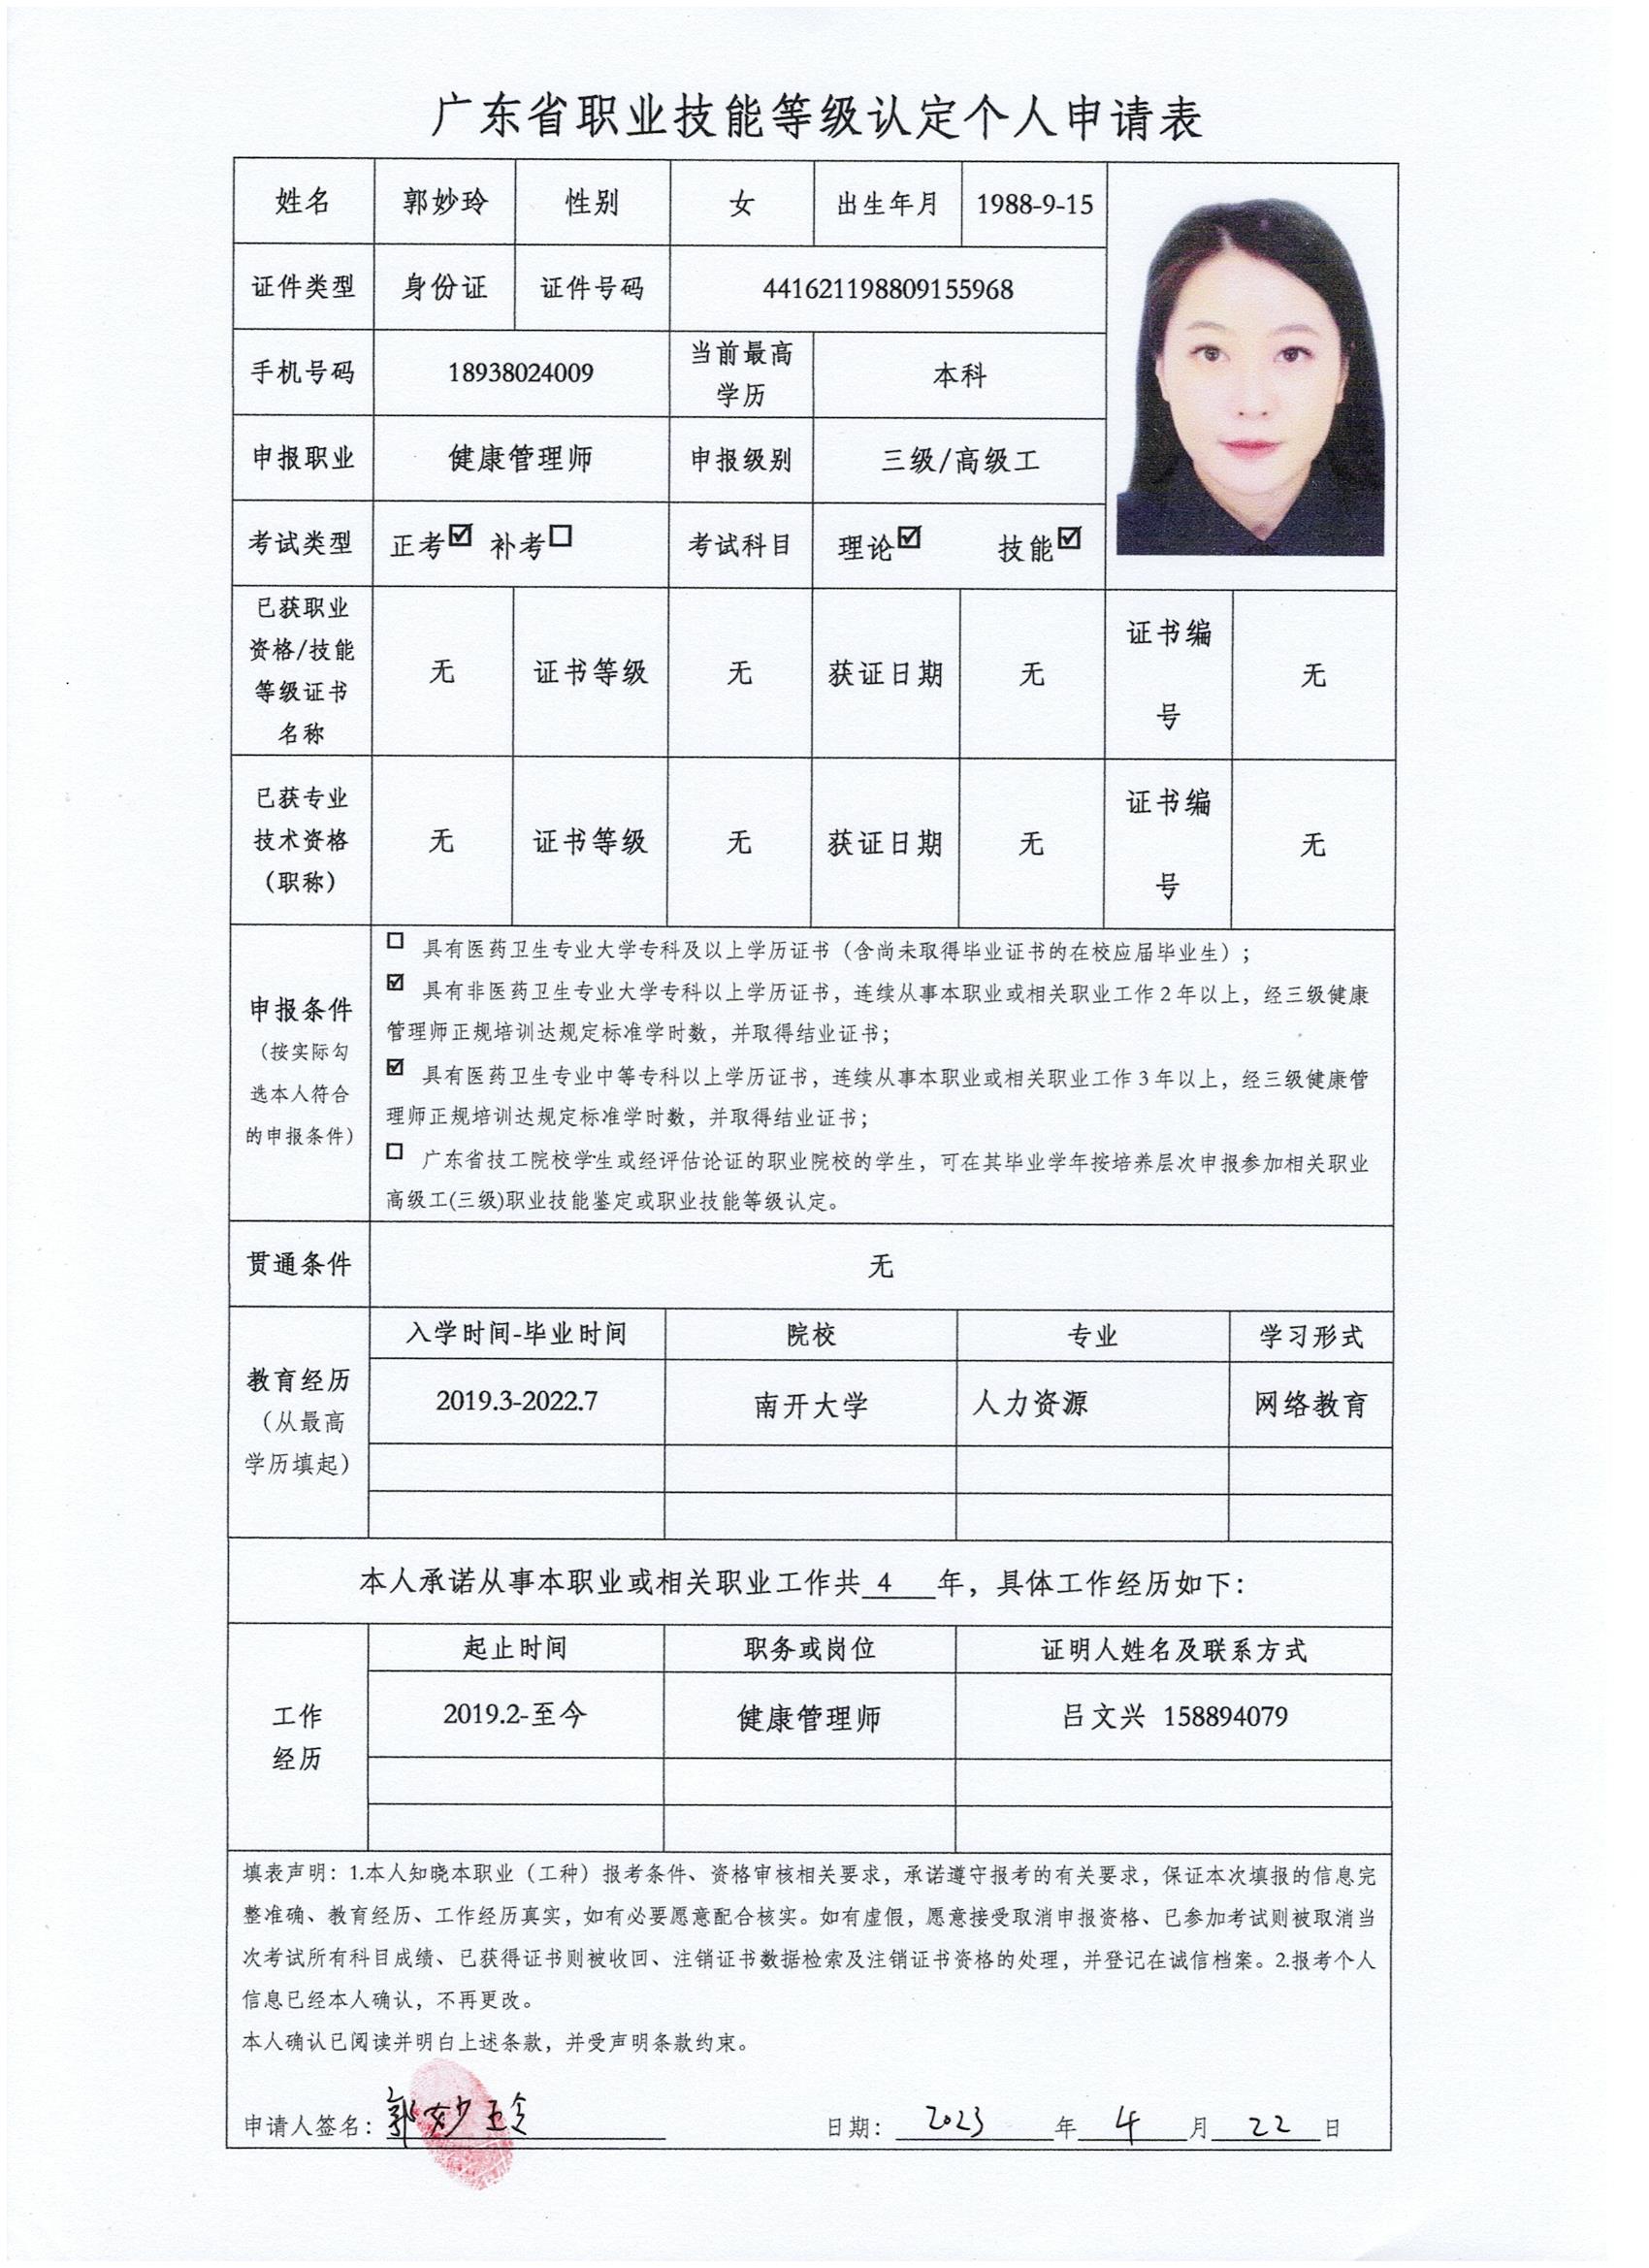 广东省职业技能等级认定个人申请表
姓名 郭妙玲 性别 女 出生年月 1988-9-15
证件类型 身份证 证件号码 441621198809155968
手机号码 18938024009 当前最高学历 本科
申报职业 健康管理师 申报级别 三级/高级工
考试类型 正考☑ 补考☐ 考试科目 理论☑ 技能☑
已获职业资格/技能等级证书名称 无 证书等级 无 获证日期 无 证书编号 无
已获专业技术资格（职称） 无 证书等级 无 获证日期 无 证书编号 无
申报条件
（按实际勾选本人符合的申报条件）
☐ 具有医药卫生专业大学专科及以上学历证书（含尚未取得毕业证书的在校应届毕业生）；
☑ 具有非医药卫生专业大学专科以上学历证书，连续从事本职业或相关职业工作2年以上，经三级健康
管理师正规培训达规定标准学时数，并取得结业证书；
☑ 具有医药卫生专业中等专科以上学历证书，连续从事本职业或相关职业工作3年以上，经三级健康管
理师正规培训达规定标准学时数，并取得结业证书；
☐ 广东省技工院校学生或经评估论证的职业院校的学生，可在其毕业学年按培养层次申报参加相关职业
高级工(三级)职业技能鉴定或职业技能等级认定。
贯通条件 无
教育经历
（从最高学历填起）
入学时间-毕业时间 院校 专业 学习形式
2019.3-2022.7 南开大学 人力资源 网络教育
本人承诺从事本职业或相关职业工作共 4 年，具体工作经历如下：
工作经历
起止时间 职务或岗位 证明人姓名及联系方式
2019.2-至今 健康管理师 吕文兴 158894079
填表声明：1.本人知晓本职业（工种）报考条件、资格审核相关要求，承诺遵守报考的有关要求，保证本次填报的信息完
整准确、教育经历、工作经历真实，如有必要愿意配合核实。如有虚假，愿意接受取消申报资格、已参加考试则被取消当
次考试所有科目成绩、已获得证书则被收回、注销证书数据检索及注销证书资格的处理，并登记在诚信档案。2.报考个人
信息已经本人确认，不再更改。
本人确认已阅读并明白上述条款，并受声明条款约束。
申请人签名：郭妙玲 日期：2023年4月22日